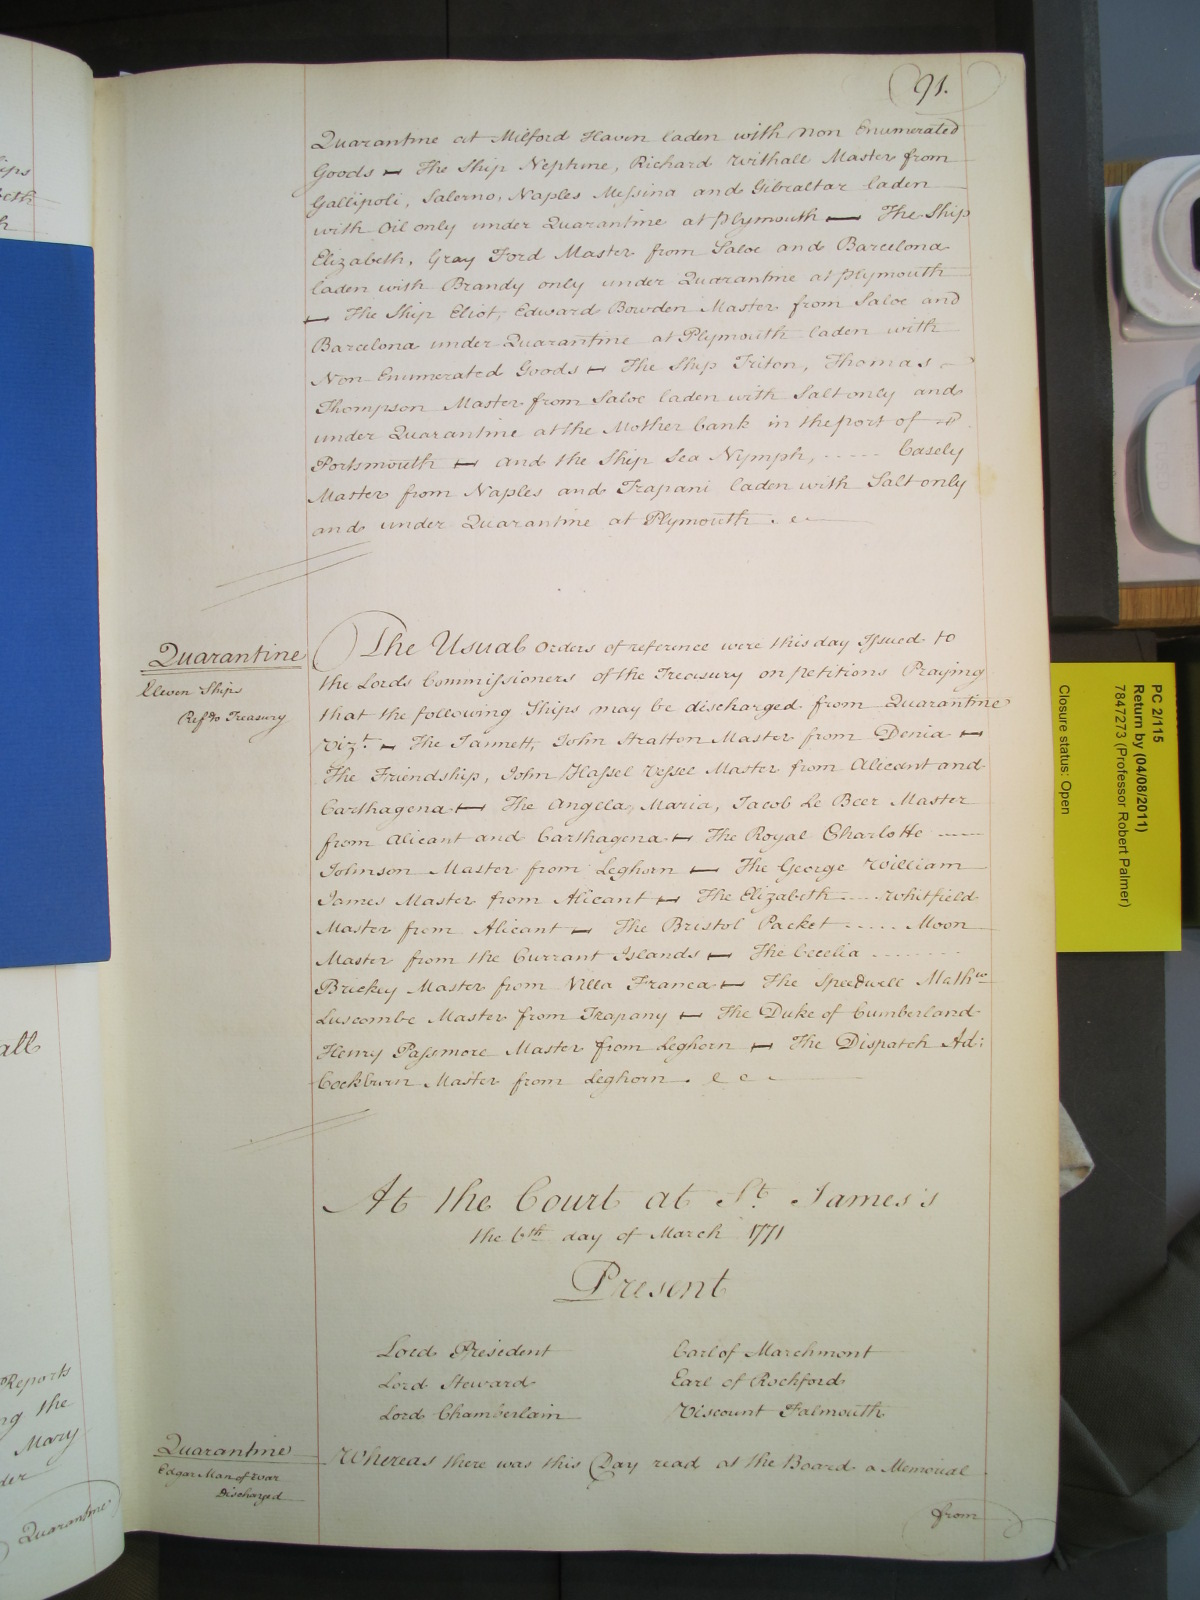 91.
Quarantine at Milford Haven laden with Non Enumerated
Goods — The Ship Neptune, Richard Withall Master from
Gallipoli, Salerno, Naples Messina and Gibraltar laden
with Oil only under Quarantine at Plymouth — The Ship
Elizabeth, Gray Ford Master from Saloe and Barcelona
laden with Brandy only under Quarantine at Plymouth
— The Ship Eliot, Edward Bowden Master from Saloe and
Barcelona under Quarantine at Plymouth laden with
Non Enumerated Goods — The Ship Triton, Thomas
Thompson Master from Saloe laden with Salt only and
under Quarantine at the Mother bank in the port of
Portsmouth — and the Ship Sea Nymph, ..... Casely
Master from Naples and Trapani laden with Salt only
and under Quarantine at Plymouth.
Quarantine
Eleven Ships
Ref.d to Treasury
The Usual Orders of reference were this day Issued to
the Lords Commissioners of the Treasury on petitions Praying
that the following Ships may be discharged from Quarantine
Vizt. — The Jannett, John Stratton Master from Denia —
The Friendship, John Hassel Vessee Master from Alicant and
Carthagena — The Angela Maria, Jacob Le Beer Master
from Alicant and Carthagena — The Royal Charlotte .....
Johnson Master from Leghorn — The George William
James Master from Alicant — The Elizabeth .... Whitfield
Master from Alicant — The Bristol Packet ..... Moon
Master from the Currant Islands — The Cecelia ........
Brickey Master from Villa Franca — The Speedwell Mathw
Luscombe Master from Trapany — The Duke of Cumberland
Henry Passmore Master from Leghorn — The Dispatch Ad:
Cockburn Master from Leghorn.
At the Court at St. James's
the 6th day of March 1771
Present
Lord President
Earl of Marchmont
Lord Steward
Earl of Rochford
Lord Chamberlain
Viscount Falmouth
Quarantine
Edgar Man of War
Discharged
Whereas there was this Day read at the Board a Memorial
from
all
Reports
ng the
Mary
der
Quarantine
PC 2/115
Return by (04/08/2011)
7847273 (Professor Robert Palmer)
Closure status: Open